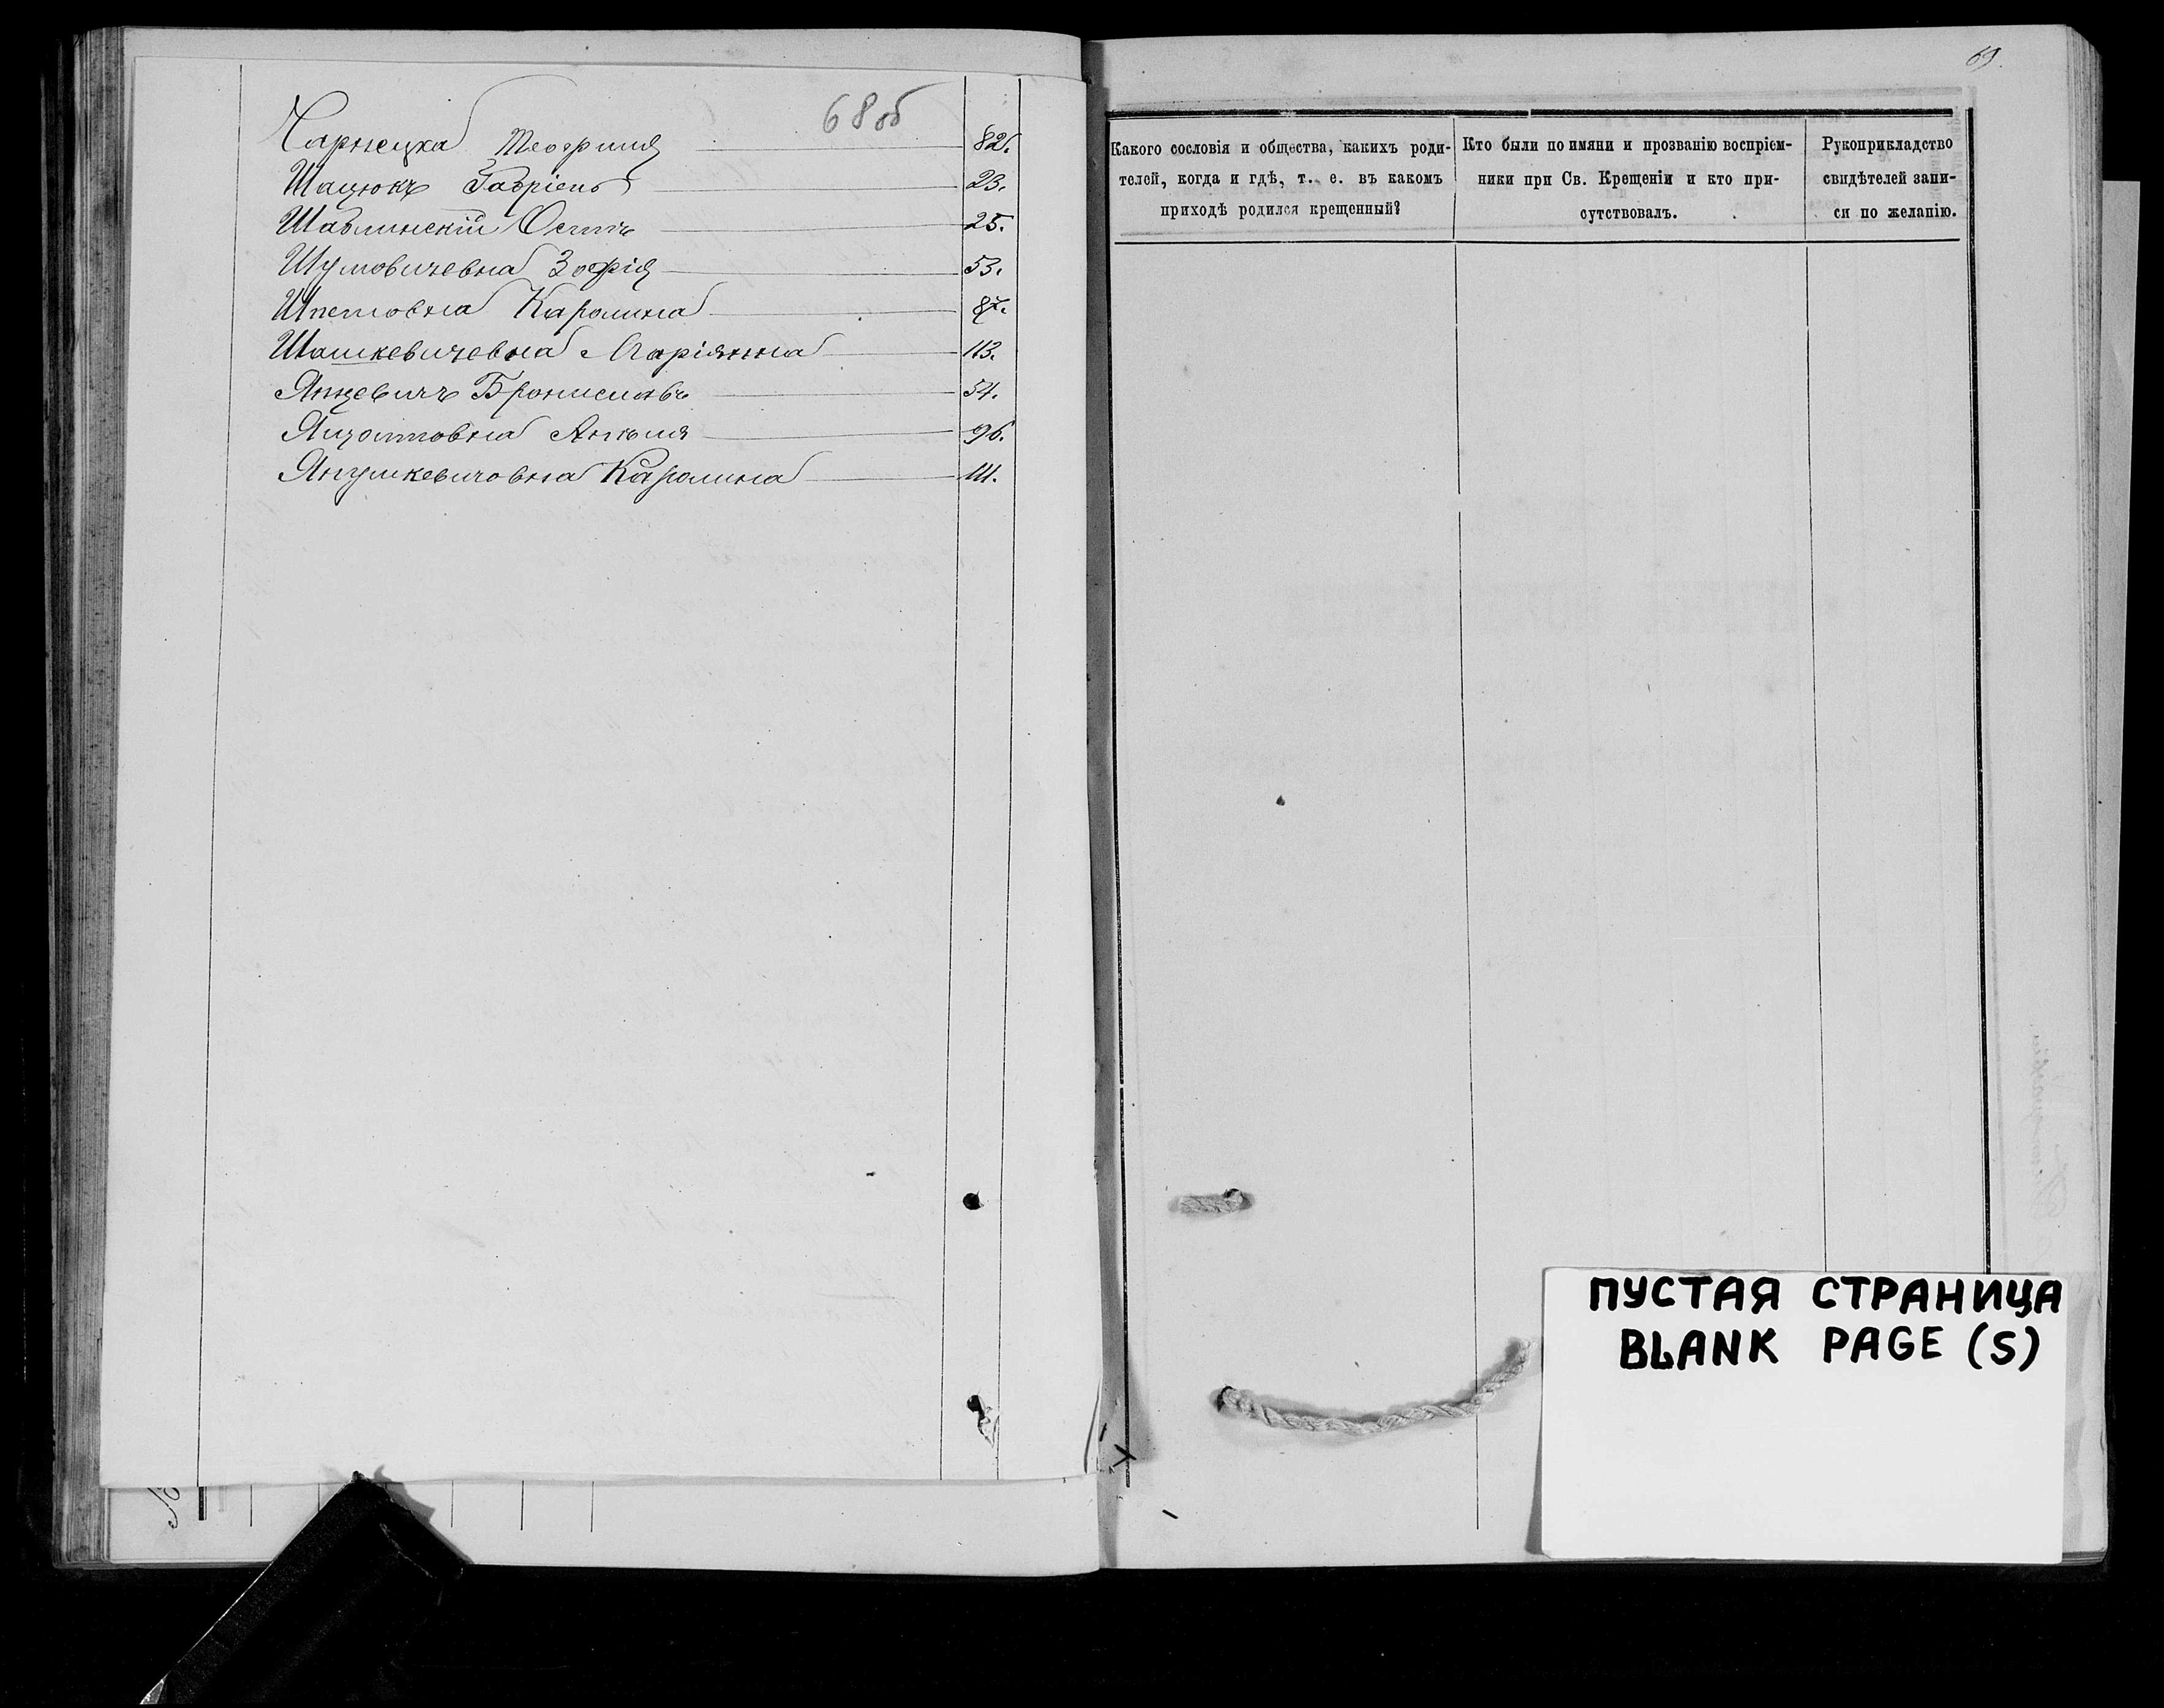 68 об
Чарнецка Теофиля 82.
Шацюкъ Габріель 23.
Шавлинскій Осипъ 25.
Шумовичевна Зофія 53.
Шпетовна Каролина
Шашкевичевна Маріянна 113.
Янцевичъ Брониславъ 54.
Яцолтовна Анеля 96.
Янушкевичовна Каролина 111.
69.
Какого сословія и общества, какихъ роди-
телей, когда и гдѣ, т. е. въ какомъ
приходѣ родился крещенный?
Кто были по имяни и прозванію воспріем-
ники при Св. Крещеніи и кто при-
сутствовалъ.
Рукоприкладство
свидѣтелей запи-
си по желанію.
ПУСТАЯ СТРАНИЦА
BLANK PAGE (S)